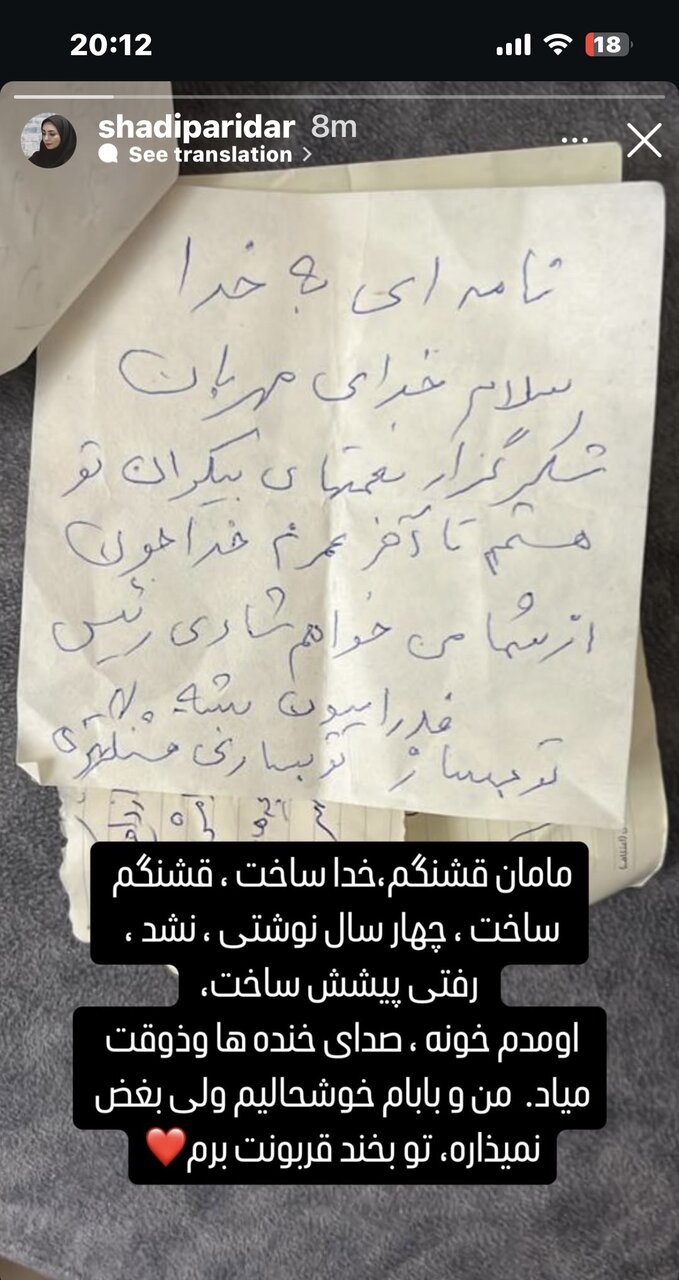 20:12
18
shadiparidar 8m
See translation
نامه ای به خدا
سلام خدای مهربان
شکرگزار نعمتهای بیکران تو
هستم تا آخر عمرم خداجون
از شما می خواهم شادی رئیس
فدراسیون بشه
تو بساز تو بسازی قشنگتره
مامان قشنگم،خدا ساخت ، قشنگم
ساخت ، چهار سال نوشتی ، نشد ،
رفتی پیشش ساخت،
اومدم خونه ، صدای خنده ها وذوقت
میاد. من و بابام خوشحالیم ولی بغض
نمیذاره، تو بخند قربونت برم❤️